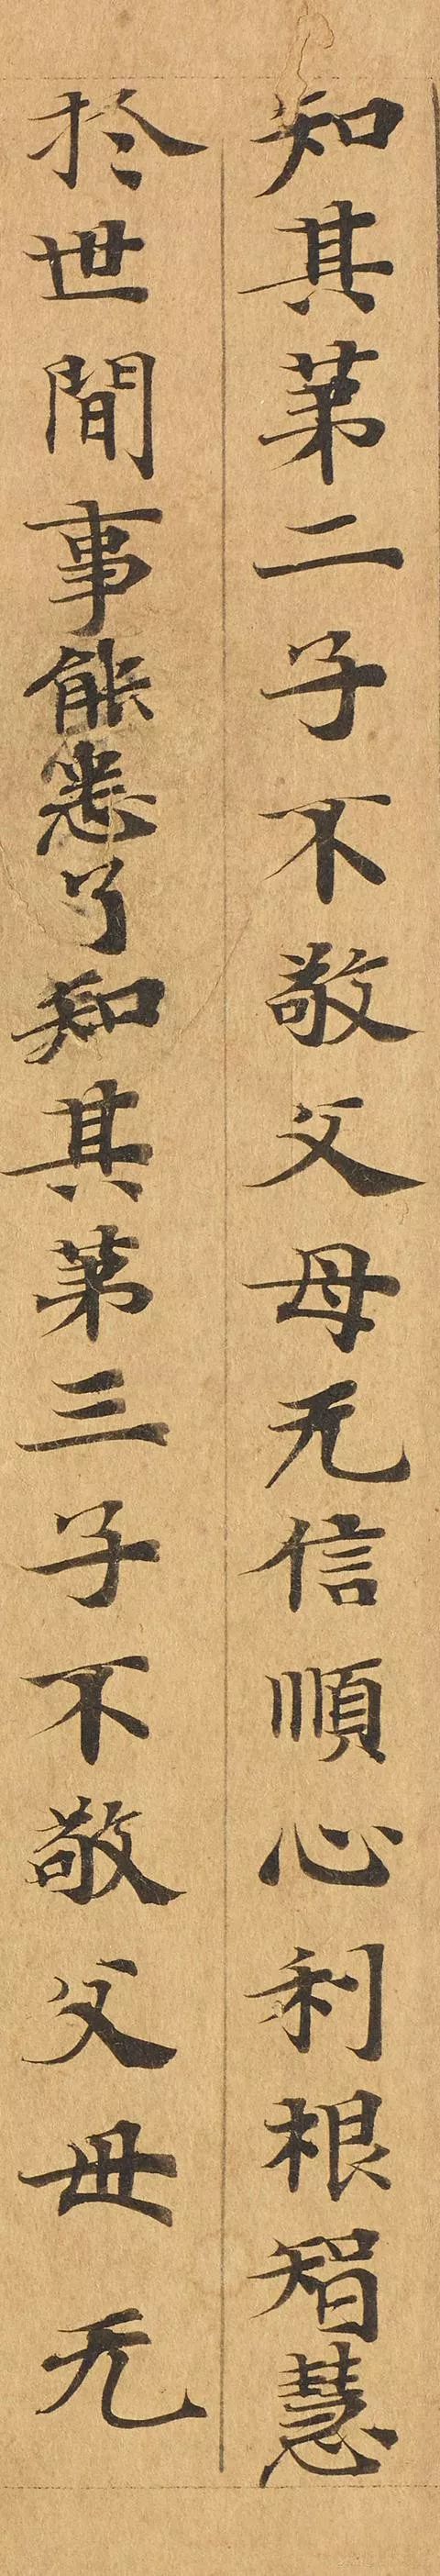 知其苐二子不敬父母无信順心利根智慧
於世間事能悉了知其苐三子不敬父母无